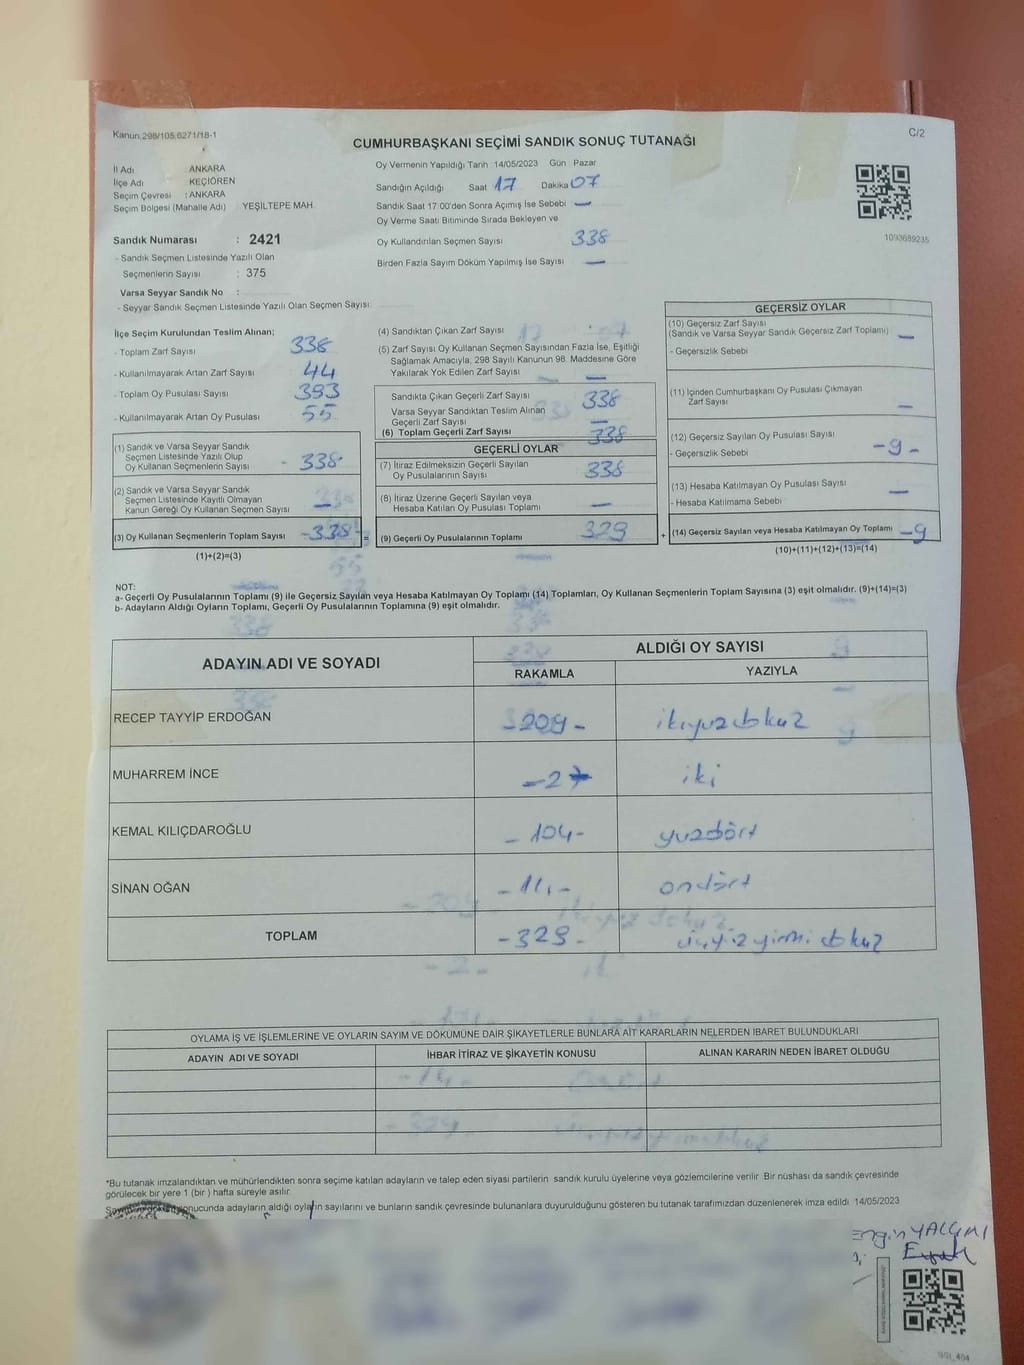 Kanun,298/105,6271/18-1
C/2
CUMHURBAŞKANI SEÇİMİ SANDIK SONUÇ TUTANAĞI
İl Adı ANKARA
İlçe Adı KEÇİÖREN
Seçim Çevresi : ANKARA
Seçim Bölgesi (Mahalle Adı) YEŞİLTEPE MAH.
Sandık Numarası : 2421
- Sandık Seçmen Listesinde Yazılı Olan
Seçmenlerin Sayısı : 375
Varsa Seyyar Sandık No :
- Seyyar Sandık Seçmen Listesinde Yazılı Olan Seçmen Sayısı:
Oy Vermenin Yapıldığı Tarih 14/05/2023 Gün Pazar
Sandığın Açıldığı Saat 17 Dakika 07
Sandık Saat 17:00'den Sonra Açımış İse Sebebi —
Oy Verme Saati Bitiminde Sırada Bekleyen ve
Oy Kullandırılan Seçmen Sayısı 338
Birden Fazla Sayım Döküm Yapılmış İse Sayısı —
1093689235
İlçe Seçim Kurulundan Teslim Alınan;
- Toplam Zarf Sayısı 338
- Kullanılmayarak Artan Zarf Sayısı 44
- Toplam Oy Pusulası Sayısı 393
- Kullanılmayarak Artan Oy Pusulası 55
(1) Sandık ve Varsa Seyyar Sandık
Seçmen Listesinde Yazılı Olup
Oy Kullanan Seçmenlerin Sayısı - 338
(2) Sandık ve Varsa Seyyar Sandık
Seçmen Listesinde Kayıtlı Olmayan
Kanun Gereği Oy Kullanan Seçmen Sayısı —
(3) Oy Kullanan Seçmenlerin Toplam Sayısı -338- =
(1)+(2)=(3)
(4) Sandıktan Çıkan Zarf Sayısı
(5) Zarf Sayısı Oy Kullanan Seçmen Sayısından Fazla İse, Eşitliği
Sağlamak Amacıyla, 298 Sayılı Kanunun 98. Maddesine Göre
Yakılarak Yok Edilen Zarf Sayısı —
Sandıkta Çıkan Geçerli Zarf Sayısı 338
Varsa Seyyar Sandıktan Teslim Alınan
Geçerli Zarf Sayısı —
(6) Toplam Geçerli Zarf Sayısı 338
GEÇERLİ OYLAR
(7) İtiraz Edilmeksizin Geçerli Sayılan
Oy Pusulalarının Sayısı 338
(8) İtiraz Üzerine Geçerli Sayılan veya
Hesaba Katılan Oy Pusulası Toplamı —
(9) Geçerli Oy Pusulalarının Toplamı 329 +
GEÇERSİZ OYLAR
(10) Geçersiz Zarf Sayısı
(Sandık ve Varsa Seyyar Sandık Geçersiz Zarf Toplamı) —
- Geçersizlik Sebebi
(11) İçinden Cumhurbaşkanı Oy Pusulası Çıkmayan
Zarf Sayısı —
(12) Geçersiz Sayılan Oy Pusulası Sayısı
- Geçersizlik Sebebi -9-
(13) Hesaba Katılmayan Oy Pusulası Sayısı
- Hesaba Katılmama Sebebi —
(14) Geçersiz Sayılan veya Hesaba Katılmayan Oy Toplamı -9
(10)+(11)+(12)+(13)=(14)
NOT:
a- Geçerli Oy Pusulalarının Toplamı (9) ile Geçersiz Sayılan veya Hesaba Katılmayan Oy Toplamı (14) Toplamları, Oy Kullanan Seçmenlerin Toplam Sayısına (3) eşit olmalıdır. (9)+(14)=(3)
b- Adayların Aldığı Oyların Toplamı, Geçerli Oy Pusulalarının Toplamına (9) eşit olmalıdır.
ADAYIN ADI VE SOYADI ALDIĞI OY SAYISI
RAKAMLA YAZIYLA
RECEP TAYYİP ERDOĞAN 209- ikiyüzdokuz
MUHARREM İNCE -2 iki
KEMAL KILIÇDAROĞLU -104- yüzdört
SİNAN OĞAN -14- ondört
TOPLAM -329- üçyüzyirmidokuz
OYLAMA İŞ VE İŞLEMLERİNE VE OYLARIN SAYIM VE DÖKÜMÜNE DAİR ŞİKAYETLERLE BUNLARA AİT KARARLARIN NELERDEN İBARET BULUNDUKLARI
ADAYIN ADI VE SOYADI İHBAR İTİRAZ VE ŞİKAYETİN KONUSU ALINAN KARARIN NEDEN İBARET OLDUĞU
*Bu tutanak imzalandıktan ve mühürlendikten sonra seçime katılan adayların ve talep eden siyasi partilerin sandık kurulu üyelerine veya gözlemcilerine verilir Bir nüshası da sandık çevresinde
görülecek bir yere 1 (bir) hafta süreyle asılır.
sonucunda adayların aldığı oyların sayılarını ve bunların sandık çevresinde bulunanlara duyurulduğunu gösteren bu tutanak tarafımızdan düzenlenerek imza edildi 14/05/2023
Engin YALÇIN